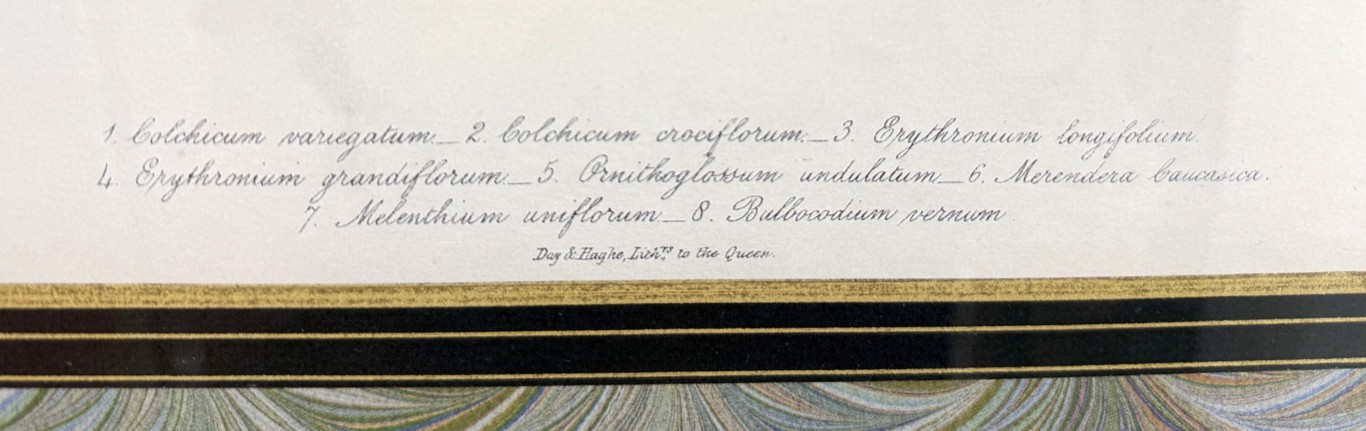 1. Colchicum variegatum._2. Colchicum crociflorum._3. Erythronium longifolium.
4. Erythronium grandiflorum._5. Ornithoglossum undulatum_6. Merendera Caucasica.
7. Melenthium uniflorum_8. Bulbocodium vernum
Day & Haghe, Lithrs. to the Queen.